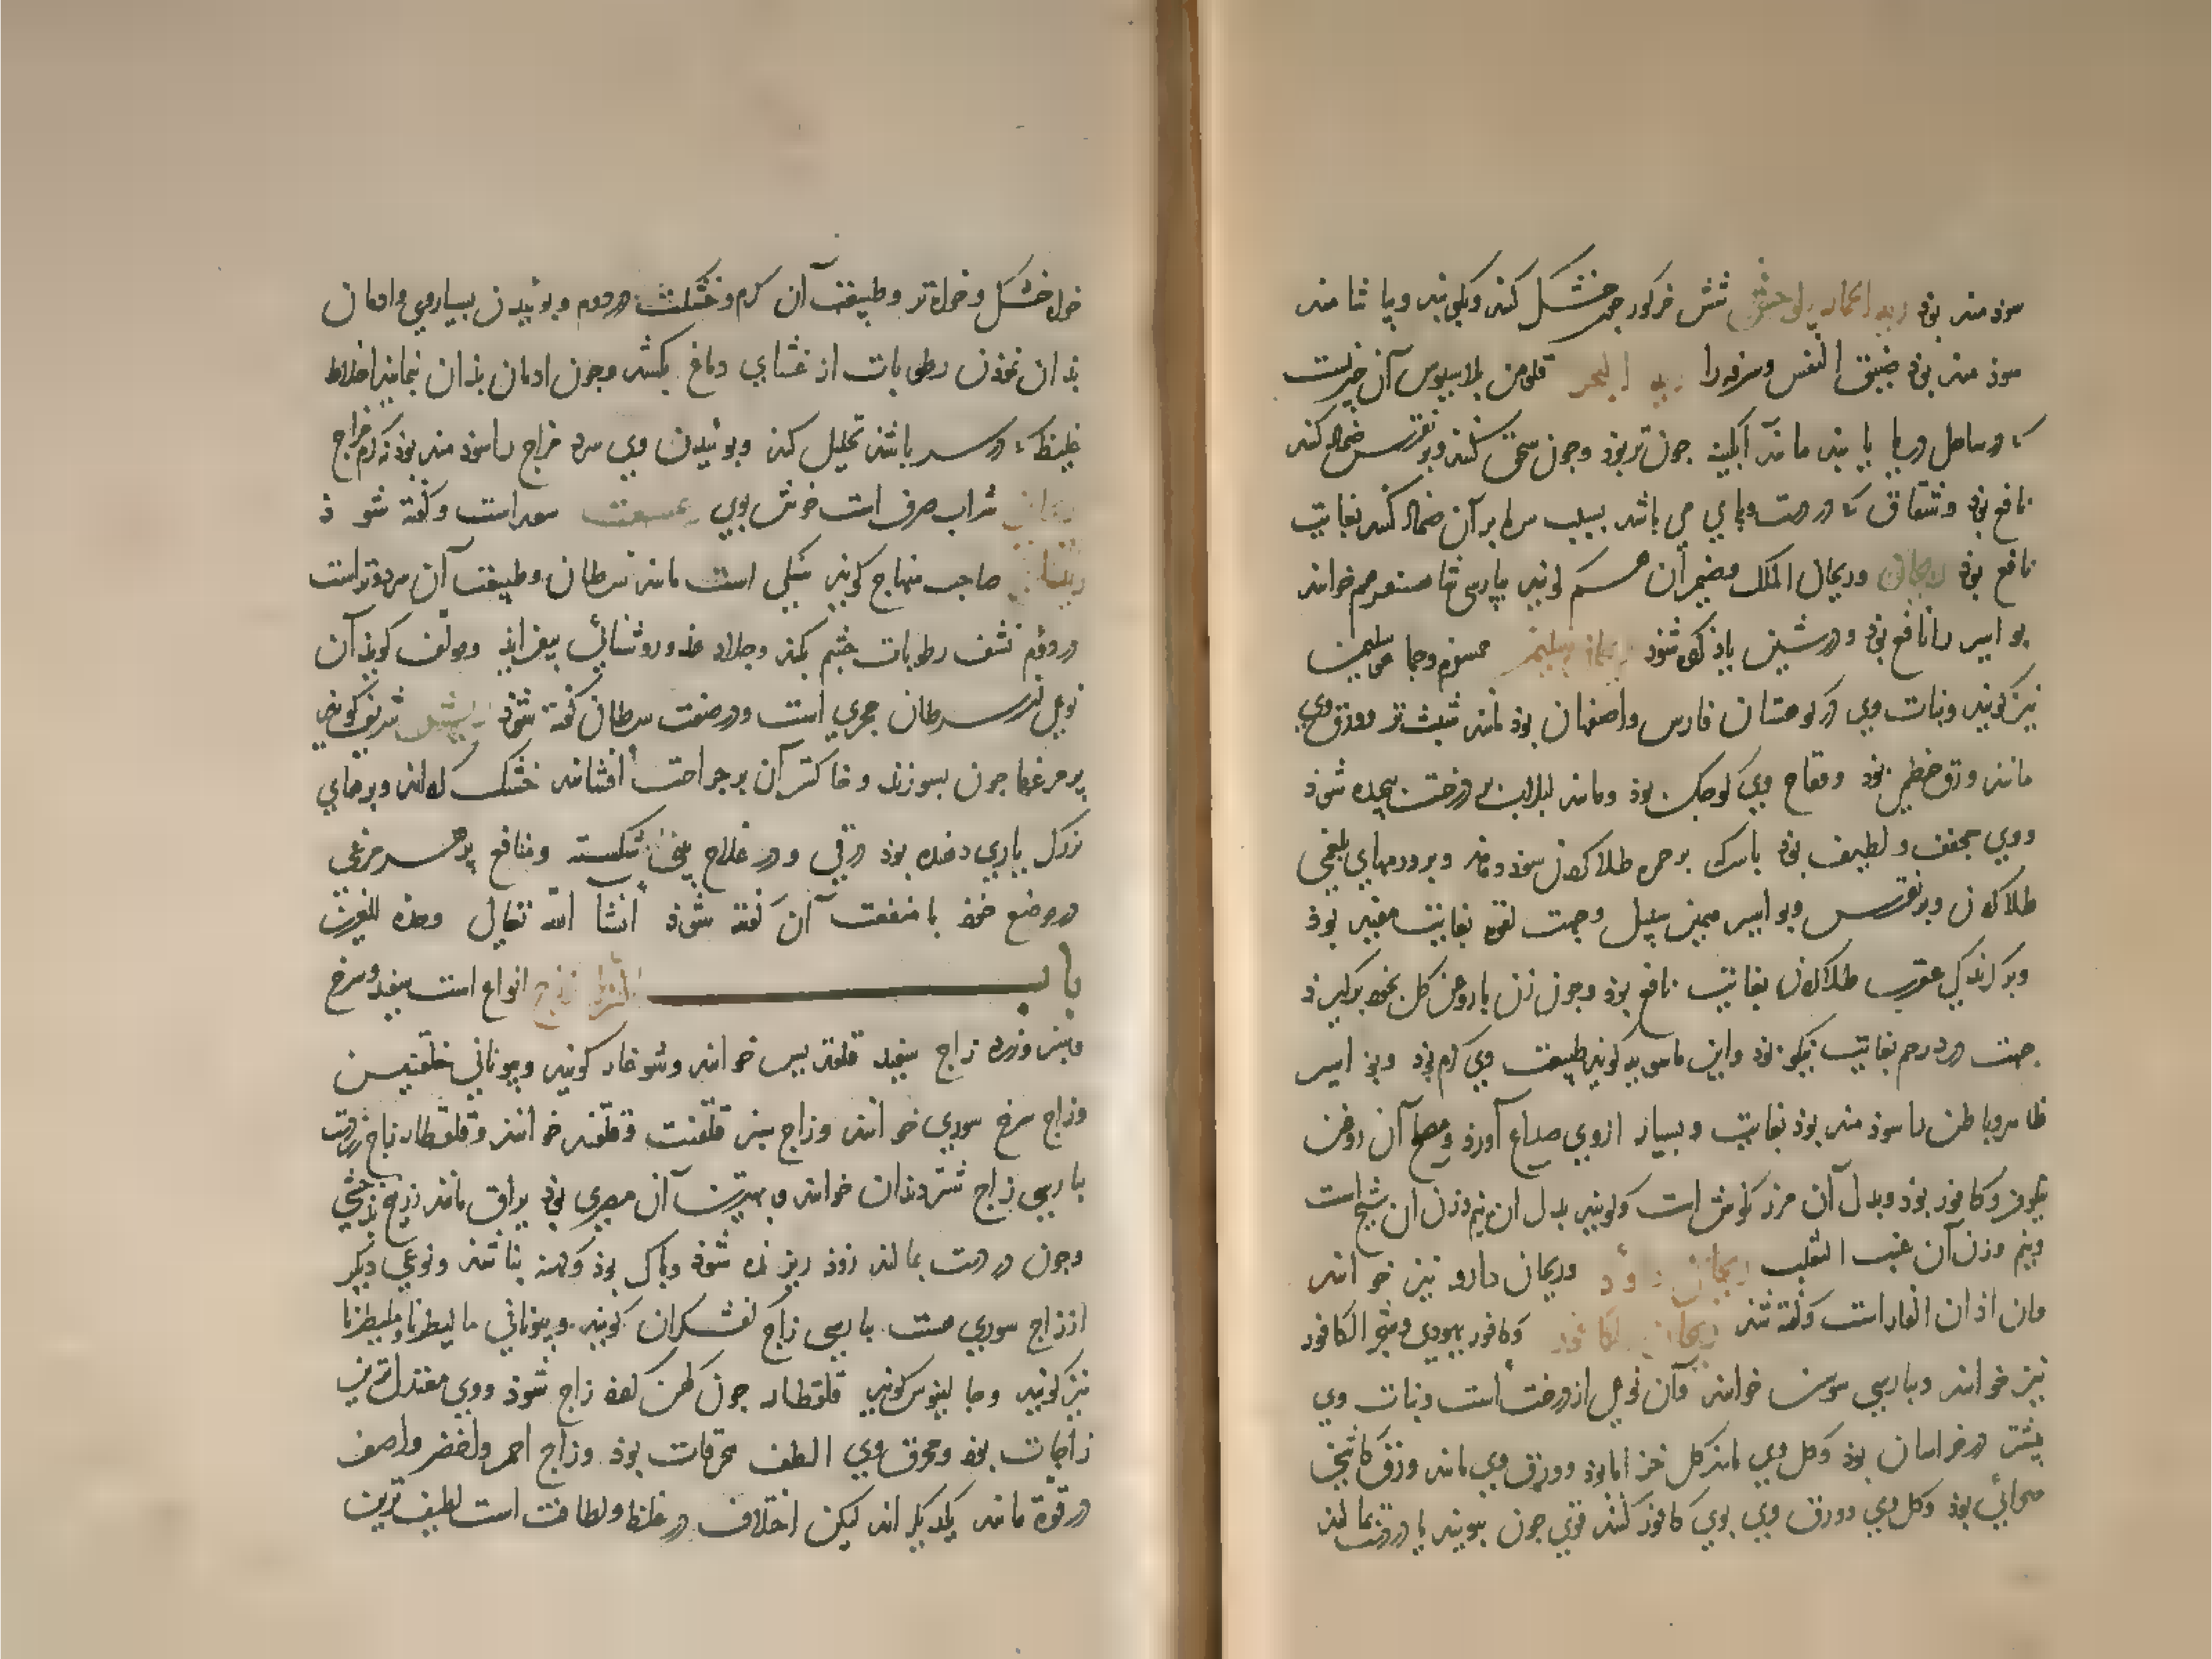 سوذ مند بوذ ریه الحمار الوحش شش خر کور جون خشک کنند و بکوبند و بیاشامند
سوذ مند بوذ ضیق النفس و سرفه را ریه البحر قلومن بلاسیوس آن چیزیست
کی در ساحل دریا یابند مانند آبکینه جون تر بوذ و جون سحق کنند و بر نقرس ضماد کنند
نافع بوذ و شقاق کی در دست و پای می باشد بسبب سرما بر آن ضماد کنند بغایت
نافع بوذ ریحان و ریحان الملک و ضیمران هم کویند بپارسی شاهسفرم خوانند
بواسیر را نافع بوذ و در شین یاذ کرده شوذ ریحان سلیمان جمسفرم و جماسلیمن
نیز کویند و نبات وی در کوهستان فارس و اصفهان بوذ مانند شبث تر و ورق وی
مانند ورق خطمی بوذ و فقاح وی کوجک بوذ و مانند لبلاب بر درخت پیچیده شوذ
و وی مجفف و لطیف بوذ با سرکه بر حمره طلا کردن سوذ دهد و بر ورمهای بلغمی
طلا کردن و بر نقرس و بواسیر همین سبیل و جهت لقوه بغایت مفید بوذ
و بر کزندکی عقرب طلا کردن بغایت نافع بوذ و جون زن با روغن کل بخوذ برکیرد
جهت درد رحم بغایت نیکو بوذ و ابن ماسویه کوید طبیعت وی کرم بوذ و بواسیر
ظاهر و باطن را سوذ مند بوذ بغایت و بسیار از وی صداع آورد و مصلح آن روغن
نیلوفر و کافور بوذ و بدل آن مرزنکوش است و کویند بدل آن نیم وزن آن شیح است
و نیم وزن آن عنب الثعلب ریحان داود و ریحان دارو نیز خوانند
و آن اذان الفار است و کفته شد ریحان الکافور و کافور یهودی و شجر الکافور
نیز خوانند و بپارسی سوسن خوانند و آن نوعی از درخت است و نبات وی
بیشتر در خراسان بوذ و کل وی مانند کل خزاما بوذ و ورق وی مانند ورق کاشنی
صحرائی بوذ و کل وی و ورق وی بوی کافور کنند قوی جون ببویند یا در دست بمالند
خواه خشک و خواه تر و طبیعت آن کرم و خشکست در دوم و بوئیدن بسیار وی و ادمان
بذان نمودن رطوبات از غشای دماغ بکشد و جون ادمان بذان نمایند اخلاط
غلیظ کی در سر باشد تحلیل کند و بوئیدن وی سرد مزاج را سوذ مند بوذ نه کرم مزاج
ریحانی شراب صرف است خوش بوی سعد است و کفته شوذ
صاحب منهاج کوید سنکی است مانند سرطان و طبیعت آن سرد و تر است
در دوم نشف رطوبات چشم بکند و جلا دهد و روشنائی بیفزایذ و مولف کوید آن
نوعی از سرطان بحری است و در صفت سرطان کفته شوذ شریف کوید
پر مرغها جون بسوزند و خاکستر آن بر جراحت افشانند خشک کرداند و پرهای
بزرک یاری دهنده بوذ در قی و در علاج بینی شکسته و منافع پر هر مرغی
در موضع خوذ با منفعت آن کفته شوذ انشا الله تعالی وحده العزیز
باب الزا زاج انواع است سفید و سرخ
و سبز و زرد زاج سفید قلقدیس خوانند و شوغار کویند و بیونانی خلقیتس
و زاج سرخ سوری خوانند و زاج سبز قلقنت و قلقند خوانند و قلقطار زاج زردست
بپارسی زاج شتردندان خوانند و بهترین آن مصری بوذ براق مانند زرنیخ بذخشی
و جون در دست بمالند زوذ ریزنده شوذ و پاک بوذ و کهنه نباشد و نوعی دیکر
از زاج سوری هست بپارسی زاج کفشکران کویند و بیونانی مالیطرنا و ملیطرنا
نیز کویند و جالینوس کوید قلقطار جون کهن کردد زاج شوذ و وی معتدل ترین
زاجات بوذ و محرق وی الطف محرقات بوذ و زاج احمر و اخضر و اصفر
در قوة مانند یکدیکر اند لیکن اختلاف در غلظ و لطافت است لطیف ترین